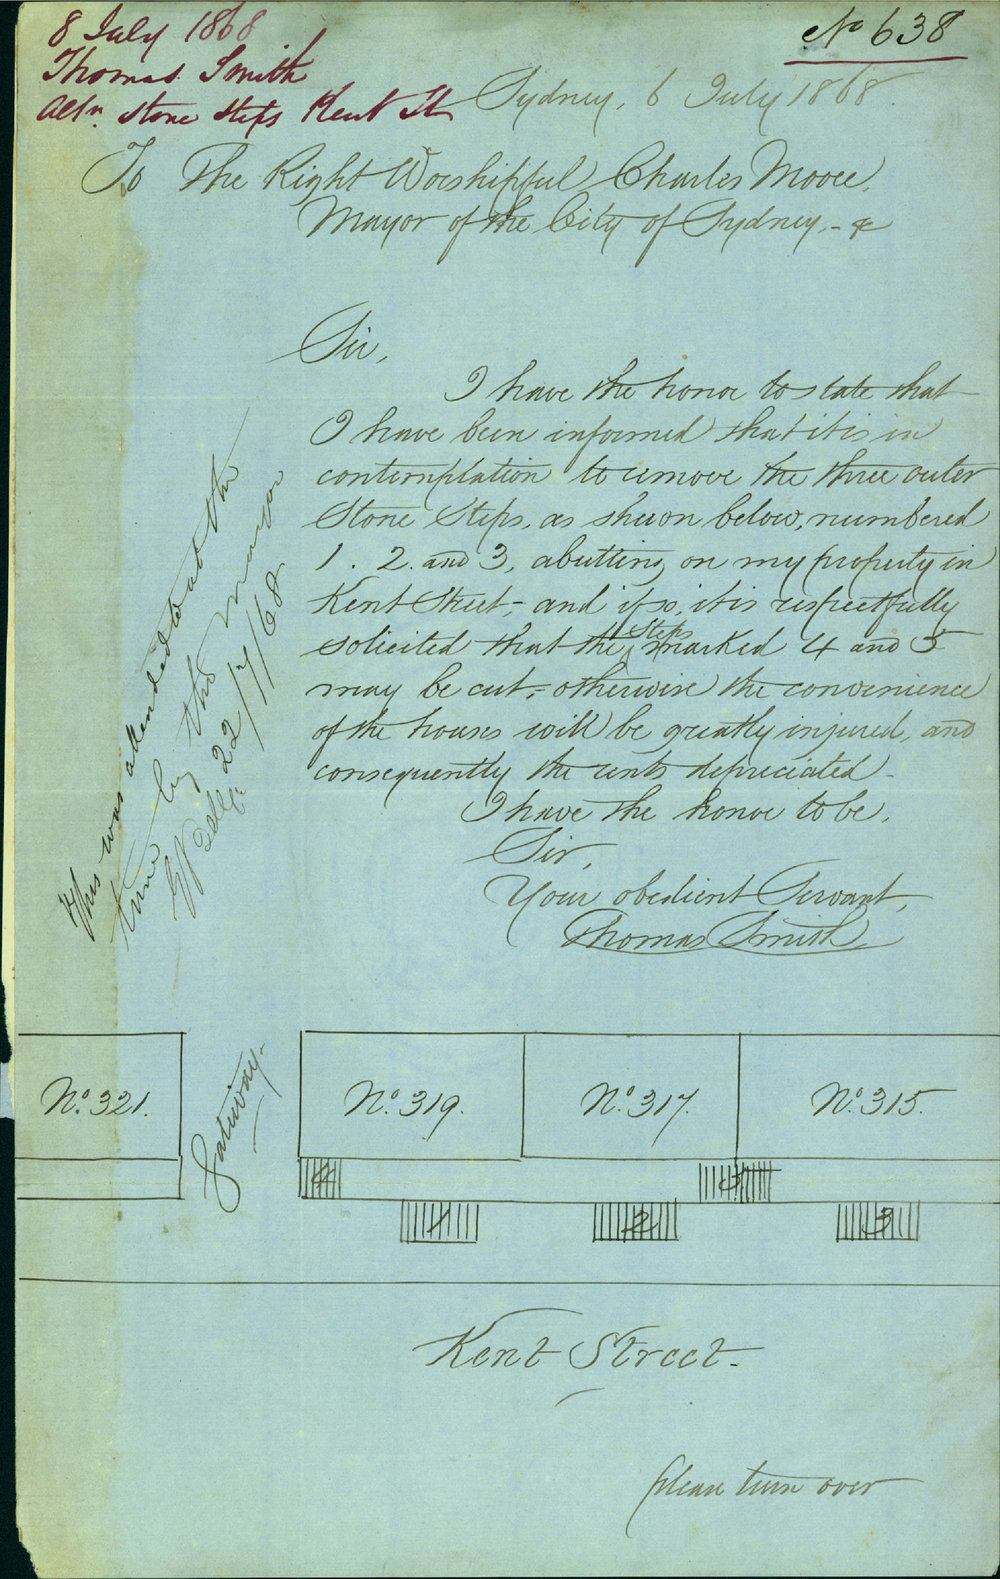 8 July 1868
Thomas Smith
Altn. Stone Steps Kent St
No 638
Sydney, 6 July 1868.
To The Right Worshipful Charles Moore,
Mayor of the City of Sydney, - &
Sir,
I have the honor to state that
I have been informed that it is in
contemplation to remove the three outer
Stone Steps, as shewn below, numbered
1. 2. and 3, abutting on my property in
Kent Street, - and if so, it is respectfully
solicited that the Steps marked 4 and 5
may be cut, - otherwise the convenience
of the houses will be greatly injured, and
consequently the rents depreciated -
I have the honor to be,
Sir,
Your obedient Servant,
Thomas Smith
This was attended to at the
time by the Mayor
22/7/68
No. 321.
Gateway -
No. 319.
No. 317.
No. 315.
4
5
1
2
3
Kent Street -
please turn over